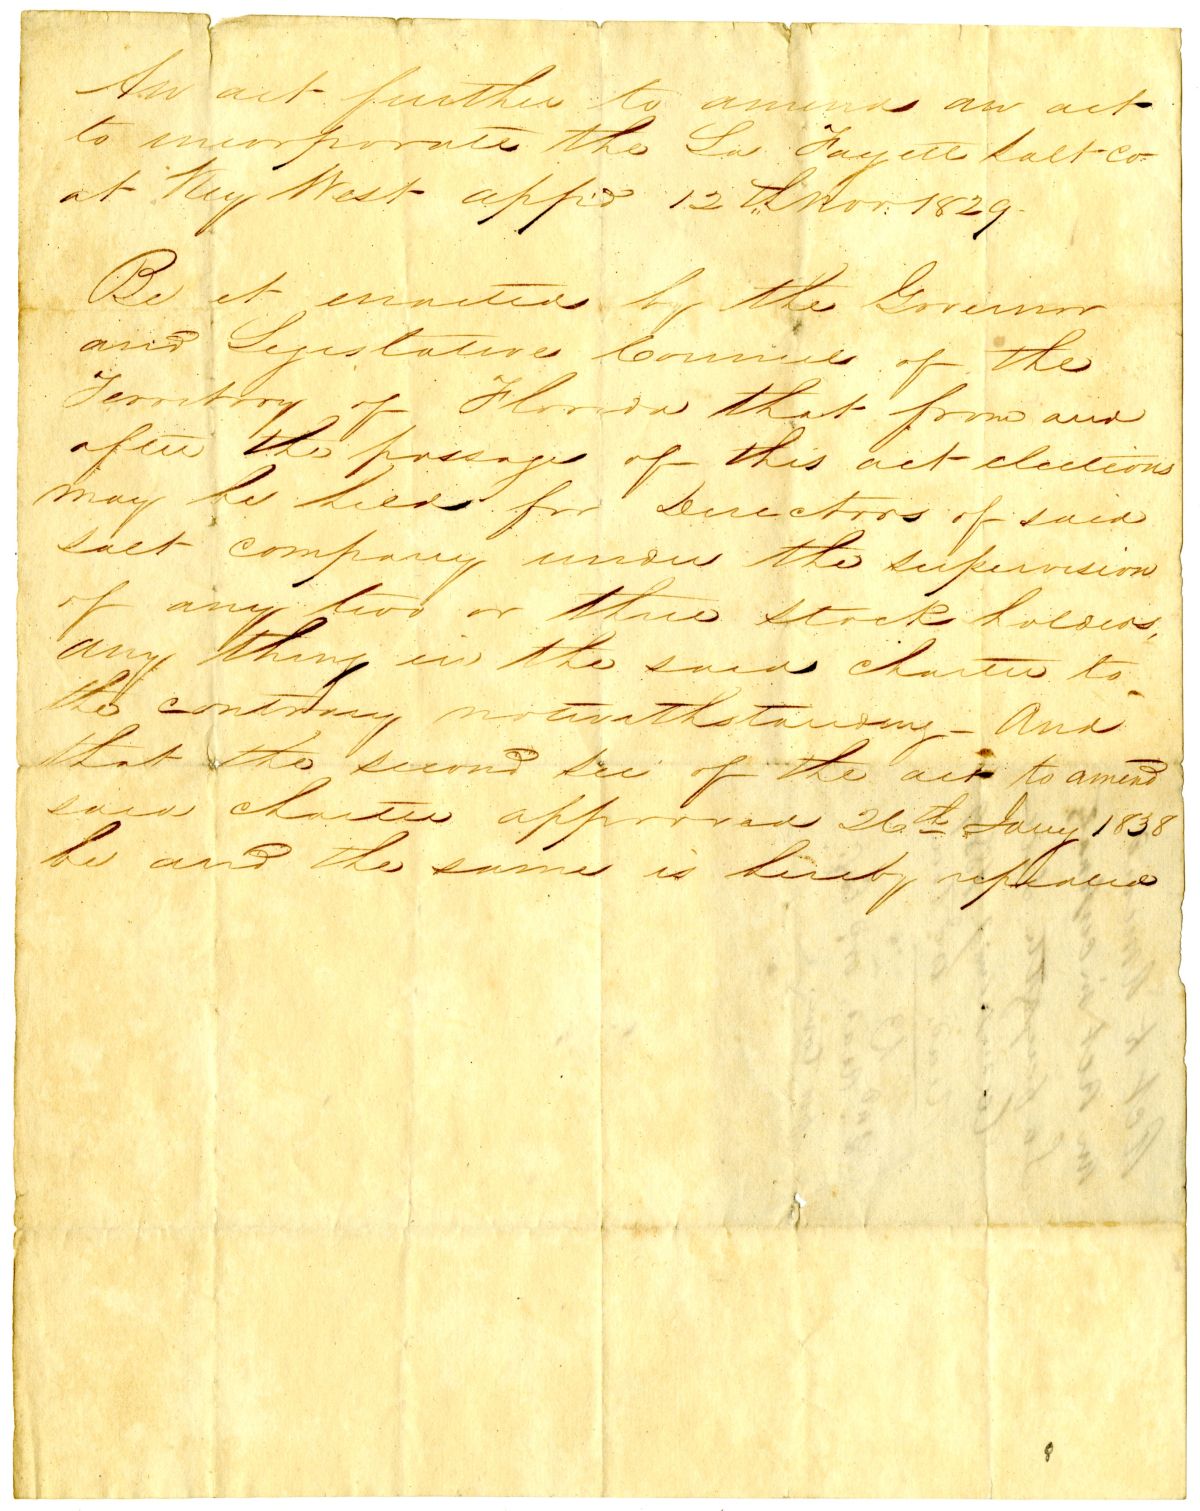 An act further to amend an act
to incorporate the La Fayette Salt Co.
at Key West app'd 12th Nov. 1829.
Be it enacted by the Governor
and Legislative Council of the
Territory of Florida that from and
after the passage of this act elections
may be held for Directors of said
salt company under the supervision
of any two or three stock holders,
any thing in the said charter to
the contrary notwithstanding - And
that the second sec of the act to amend
said charter approved 26th Jany 1838
be and the same is hereby repealed
8